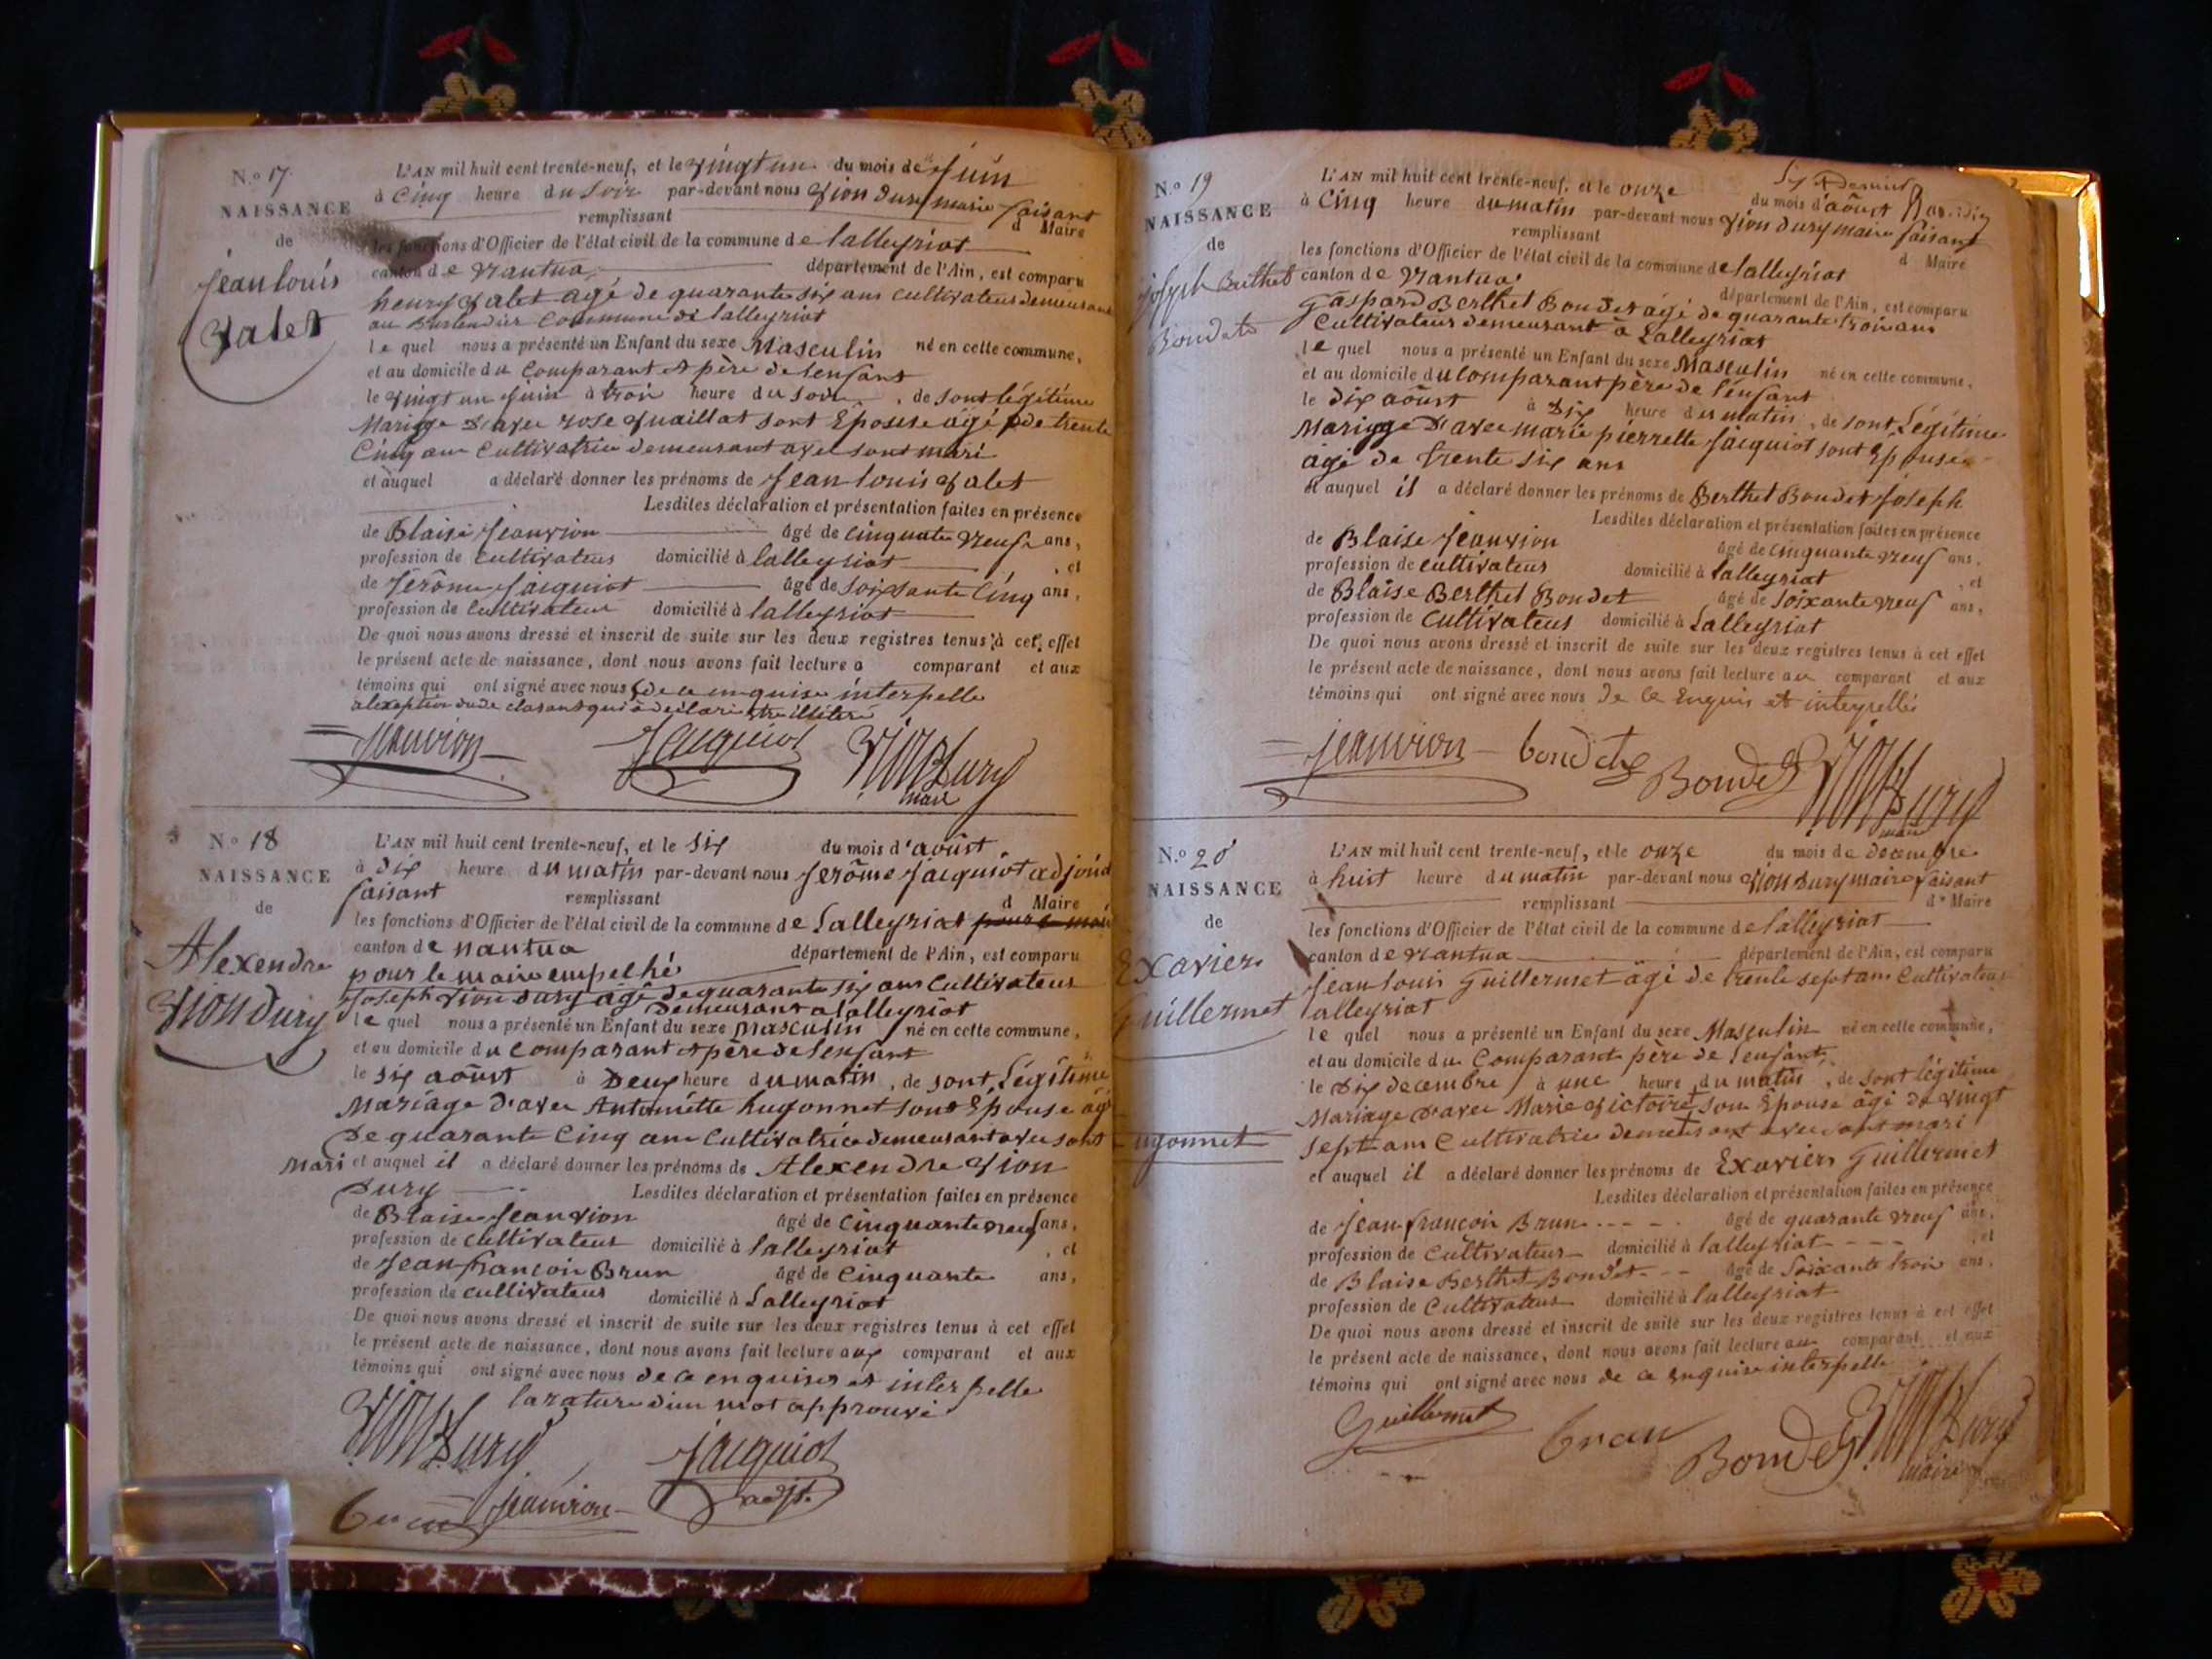 N.o 17
NAISSANCE
de
Jean louis
Valet
L'AN mil huit cent trente-neuf, et le vingt un du mois de Juin
à Cinq heure du Soir par-devant nous Vion Dury maire faisant
remplissant d Maire
les fonctions d'Officier de l'état civil de la commune de lalleyriat
canton de Nantua département de l'Ain, est comparu
henry Valet agé de quarante six ans Cultivateur demeurant
au Commune de lalleyriat
le quel nous a présenté un Enfant du sexe Masculin né en cette commune,
et au domicile du Comparant et père de lenfant
le vingt un Juin à troi heure du Soir, de sont légétime
Mariage D'avec rose quaillat sont Epouse âgé de trente
Cinq ans Cultivatrice demeurant avec sont mari
et auquel a déclaré donner les prénoms de Jean louis Valet
Lesdites déclaration et présentation faites en présence
de Blaise Jeanvion âgé de cinquante neuf ans,
profession de Cultivateur domicilié à lalleyriat, et
de Jérôme Jacquiot âgé de Soixsante Cinq ans,
profession de Cultivateur domicilié à lalleyriat
De quoi nous avons dressé et inscrit de suite sur les deux registres tenus à cet effet
le présent acte de naissance, dont nous avons fait lecture a comparant et aux
témoins qui ont signé avec nous de ce enquise interpelle
alexeption du declarant qui a declaré être illiteré
Jeanvion Jacquiot Vion Dury
maire
N.o 18
NAISSANCE
de
Alexendre
Vion Dury
L'AN mil huit cent trente-neuf, et le Six du mois d'août
à dix heure du matin par-devant nous Jerôme Jacquiot adjoint
faisant remplissant d Maire
les fonctions d'Officier de l'état civil de la commune de Lalleyriat pour le maire
canton de nantua département de l'Ain, est comparu
pour le maire empeché
Joseph Vion Dury âgé de quarante six ans Cultivateur
Demeurant a lalleyriat
le quel nous a présenté un Enfant du sexe masculin né en cette commune,
et au domicile du Comparant et père de lenfant
le Six août à Deux heure du matin, de sont Légitime
Mariage D'avec Antoinette hugonnet sont Epouse agé
De quarante Cinq ans Cultivatrice demeurant avec sont
Mari et auquel il a déclaré donner les prénoms de Alexendre Vion
Dury Lesdites déclaration et présentation faites en présence
de Blaise Jeanvion âgé de Cinquante neuf ans,
profession de Cultivateur domicilié à lalleyriat, et
de Jean françoi Brun âgé de Cinquante ans,
profession de Cultivateur domicilié à Lalleyriat
De quoi nous avons dressé et inscrit de suite sur les deux registres tenus à cet effet
le présent acte de naissance, dont nous avons fait lecture aux comparant et aux
témoins qui ont signé avec nous de ce enquiser et interpelle
la rature d'un mot approuvé
Vion Dury Jacquiot
adjt.
Brun Jeanvion
N.o 19
NAISSANCE
de
Joseph Berthet
Boudet
L'AN mil huit cent trente-neuf, et le onze du mois d'aôust
à Cinq heure du matin par-devant nous Vion Dury maire faisant
remplissant d Maire
les fonctions d'Officier de l'état civil de la commune de lalleyriat
canton de Nantua département de l'Ain, est comparu
Gaspard Berthet Boudet âgé de quarante troi ans
Cultivateur demeurant à Lalleyriat
le quel nous a présenté un Enfant du sexe Masculin né en cette commune,
et au domicile du Comparant père de l'enfant
le dix aôust à Dix heure du matin, de sont Légitime
Mariage D'avec marie pierrette Jacquiot sont Epouse
agé de trente six ans
et auquel il a déclaré donner les prénoms de Berthet Boudet Joseph
Lesdites déclaration et présentation faites en présence
de Blaise Jeanvion âgé de cinquante neuf ans,
profession de cultivateur domicilié à lalleyriat, et
de Blaise Berthet Boudet âgé de Soixante neuf ans,
profession de Cultivateur domicilié à Lalleyriat
De quoi nous avons dressé et inscrit de suite sur les deux registres tenus à cet effet
le présent acte de naissance, dont nous avons fait lecture au comparant et aux
témoins qui ont signé avec nous de Ce Enquis et interpellé
Jeanvion boudet Boudet Vion Dury
maire
N.o 20
NAISSANCE
de
Exavier
Guillermet
L'AN mil huit cent trente-neuf, et le onze du mois de decembre
à huit heure du matin par-devant nous Vion Dury maire faisant
remplissant d Maire
les fonctions d'Officier de l'état civil de la commune de lalleyriat
canton de Nantua département de l'Ain, est comparu
Jean louis Guillermet âgé de trente sept ans Cultivateur
lalleyriat
le quel nous a présenté un Enfant du sexe Masculin né en cette commune,
et au domicile du Comparant père de l'enfant
le Dix decembre à une heure du matin, de sont légitime
Mariage D'avec Marie Victoire son Epouse âgé de vingt
hugonnet
sept ans Cultivatrice demeurant avec sont mari
et auquel il a déclaré donner les prénoms de Exavier Guillermet
Lesdites déclaration et présentation faites en présence
de Jean françoi Brun âgé de quarante neuf ans,
profession de Cultivateur domicilié à lalleyriat, et
de Blaise Berthet Boudet âgé de Soixante troi ans,
profession de Cultivateur domicilié à lalleyriat
De quoi nous avons dressé et inscrit de suite sur les deux registres tenus à cet effet
le présent acte de naissance, dont nous avons fait lecture au comparant et aux
témoins qui ont signé avec nous de ce enquise interpelle
Guillermet brun Boudet Vion Dury
maire